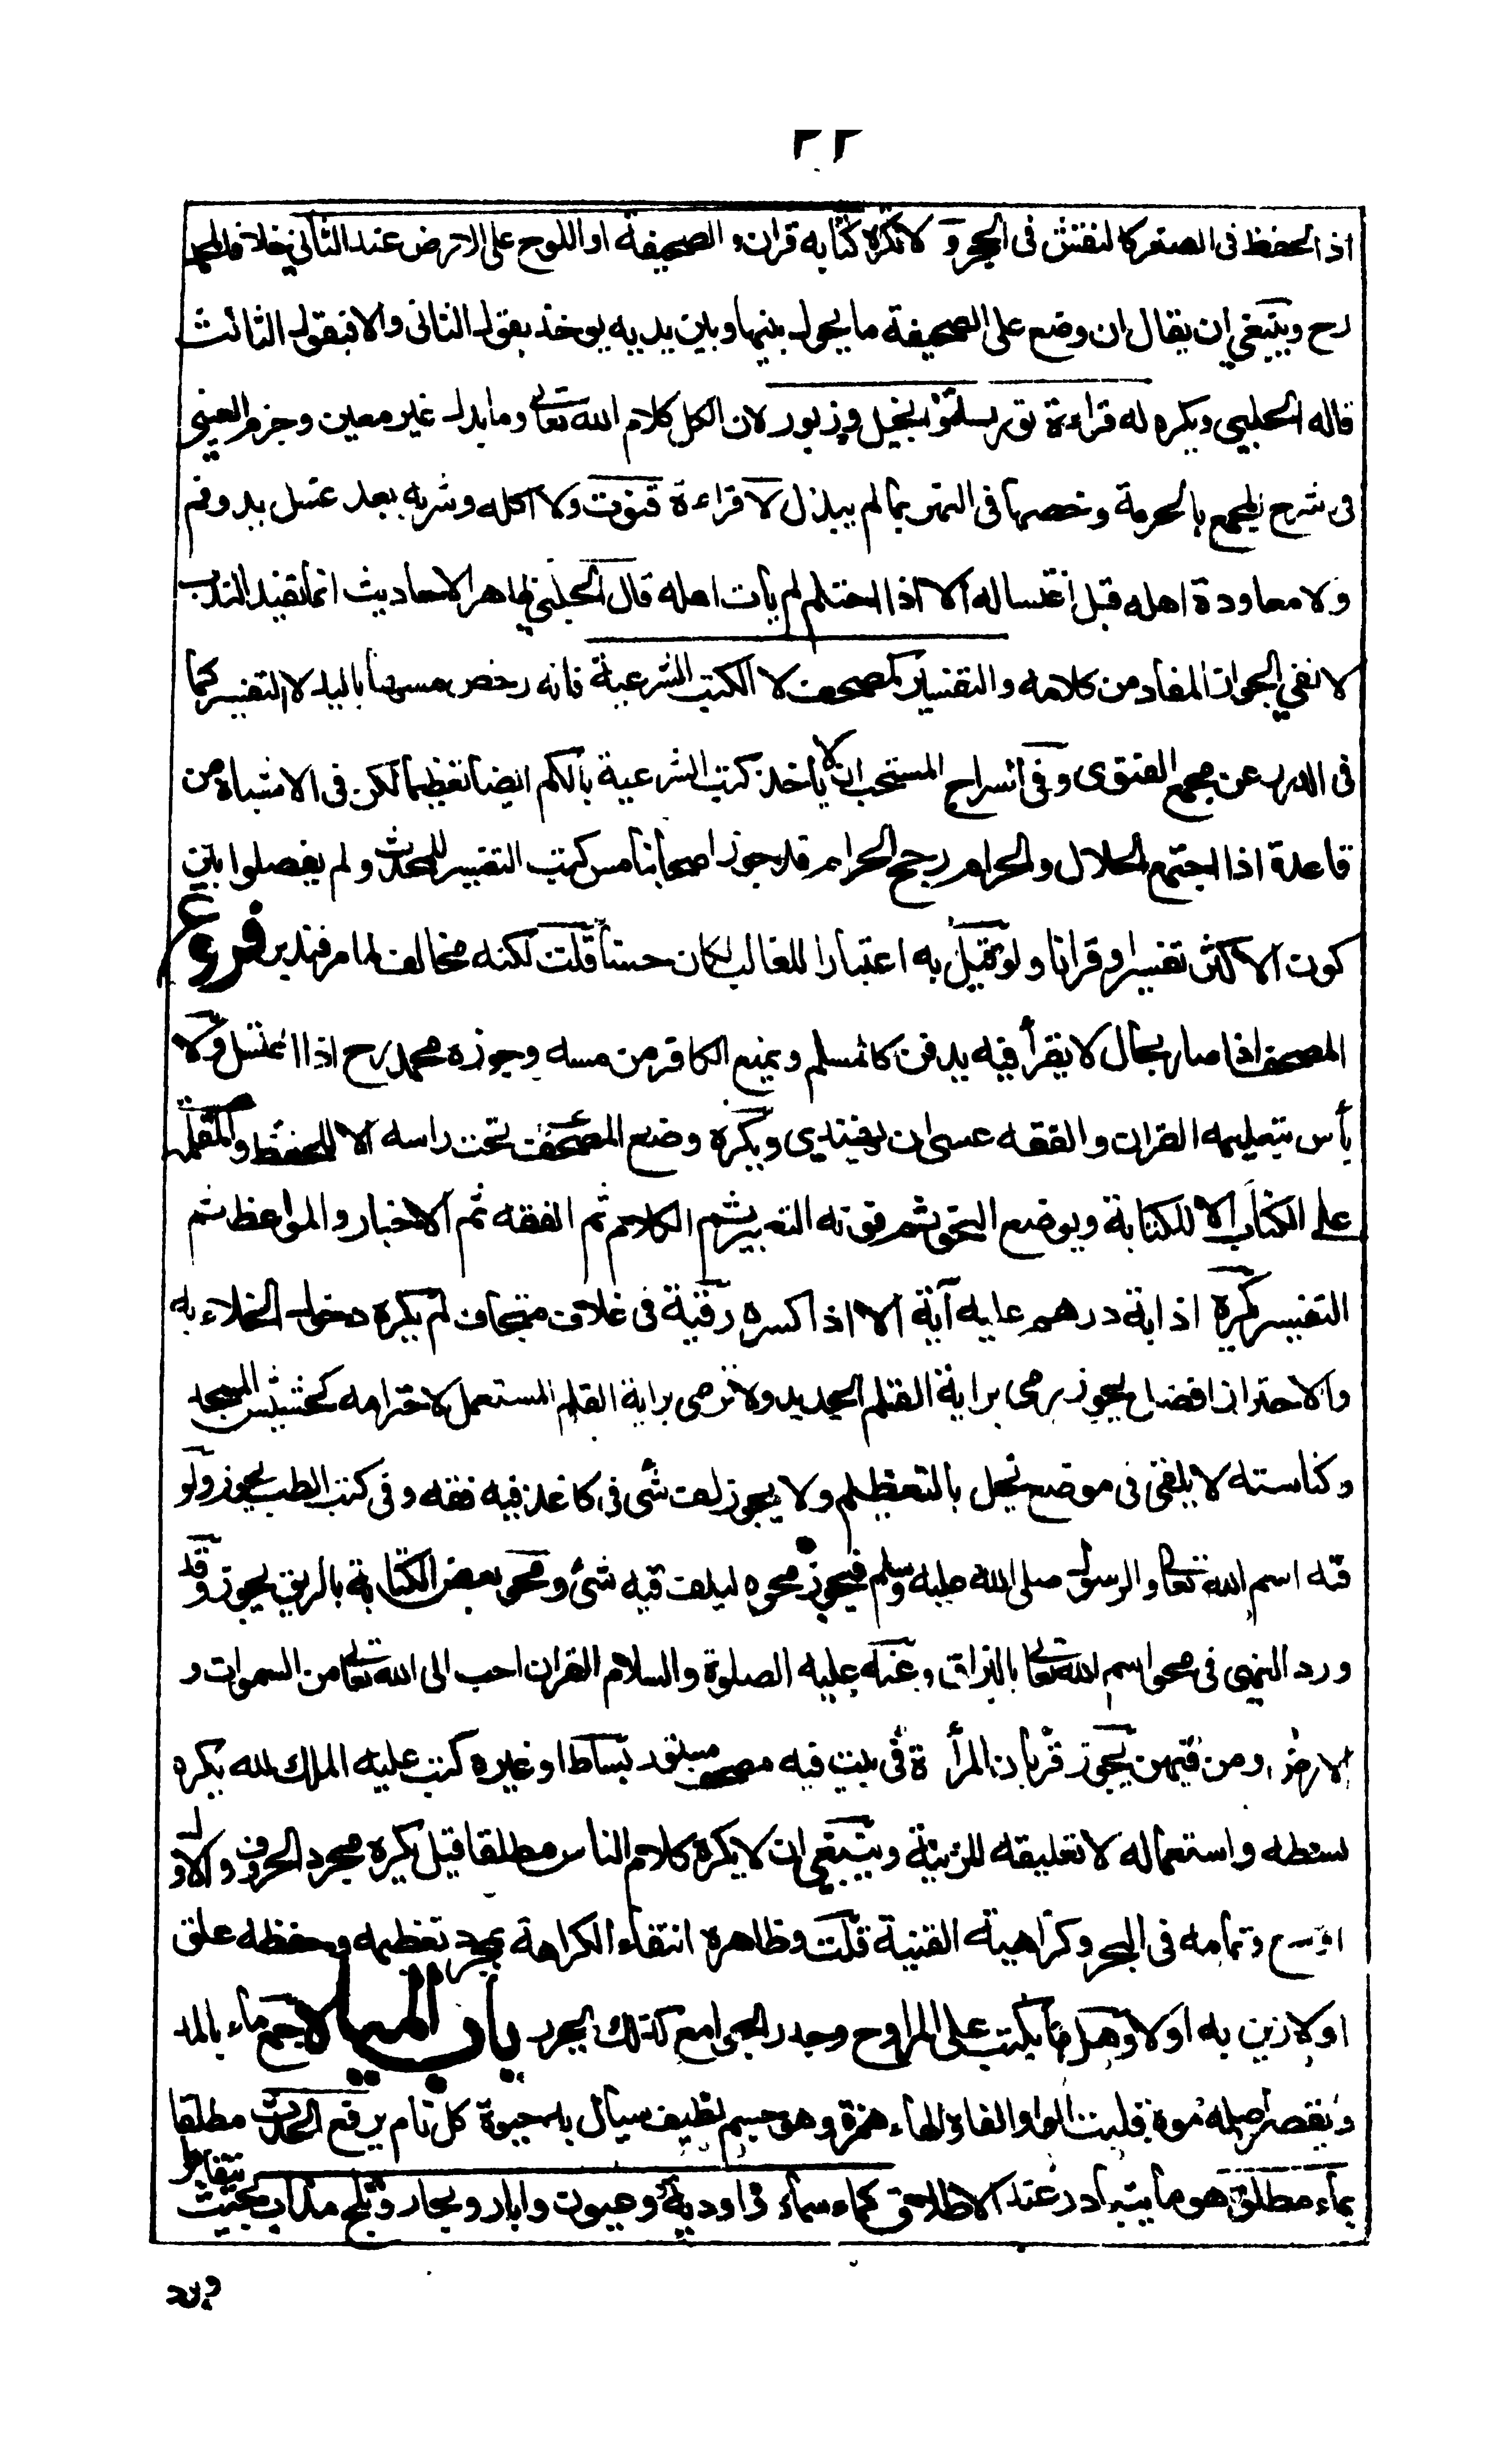 ٢٢
اذ الحفظ فى الصغر كالنقش فى الحجر و لا تكره كتابه قران و الصحيفة او اللوح على الارض عند الثانى خلافا لمحمد
رح وينبغى ان يقال ان وضع على الصحيفة ما يحول بينها وبين يديه يوخذ بقول الثانى والا فبقول الثالث
قاله الحلبى ويكره له قراءة توراة وانجيل وزبور لان الكل كلام الله تعالى وما بدل غير معين وجزم العينى
فى شرح المجمع بالحرمة وخصها فى النهر بما لم يبدل لا قراءة قنوت ولا اكله وشربه بعد غسل يد وفم
ولا معاودة اهله قبل اغتساله الا اذا احتلم لم يأت اهله قال الحلبى ظاهر الاحاديث انما يفيد الندب
لا نفى الجواز المفاد من كلامه والتفسير كمصحف لا الكتب الشرعية فانه رخص مسها باليد لا التفسير كما
فى الدرر عن مجمع الفتوى وفى السراج المستحب ان لا يأخذ كتب الشرعية بالكم ايضا تعظيما لكن فى الاشباه من
قاعدة اذا اجتمع الحلال والحرام رجح الحرام قد جوز اصحابنا مس كتب التفسير للمحدث و لم يفصلوا بين
كون الاكثر تفسيرا و قرانا ولو قيل به اعتبارا للغالب لكان حسنا قلت لكنه مخالف لما مر فتدبر فروع
المصحف اذا صار بحال لا يقرأ فيه يدفن كالمسلم ويمنع الكافر من مسه وجوزه محمد رح اذا اغتسل ولا
بأس بتعليمه القران والفقه عسى ان يهتدى ويكره وضع المصحف تحت راسه الا للحفظ والمقلمة
على الكتاب الا للكتابة ويوضع النحو ثم فوقه التعبير ثم الكلام ثم الفقه ثم الاخبار والمواعظ ثم
التفسير تكره اذابة درهم عليه آية الا اذا كسره رقية فى غلاف متجاف لم يكره دخول الخلاء به
والاحتراز افضل يجوز رمى براية القلم الجديد ولا ترمى براية القلم المستعمل لاحترامه كحشيش المسجد
وكناسته لا يلقى فى موضع يخل بالتعظيم ولا يجوز لف شئ فى كاغذ فيه فقه وفى كتب الطب يجوز ولو
فيه اسم الله تعالى و الرسول صلى الله عليه وسلم فيجوز محوه ليلف فيه شئ ومحو بعض الكتابة بالريق يجوز وقد
ورد النهى فى محو اسم الله تعالى بالبزاق وعنه عليه الصلوة والسلام القران احب الى الله تعالى من السموات و
الارض ومن فيهن يجوز قربان المرأة فى بيت فيه مصحف مستور بساط او غيره كتب عليه الملك لله يكره
بسطه واستعماله لا تعليقه للزينة وينبغى ان لا يكره كلام الناس مطلقا قيل يكره مجرد الحروف والاول
اوسع وتمامه فى البحر وكراهية القنية قلت وظاهره انتفاء الكراهة بمجرد تعظيمه وحفظه علق
او لا زين به او لا وهل ما يكتب على المراوح وجدر الجوامع كذلك يحرر باب المياه جمع ماء بالمد
ويقصر اصله موه قلبت الواو الفا والهاء همزة وهو جسم لطيف سيال به حيوة كل نام يرفع الحدث مطلقا
بماء مطلق هو ما يتبادر عند الاطلاق كماء سماء و اودية وعيون وابار وبحار وثلج مذاب بحيث
يتقاطر